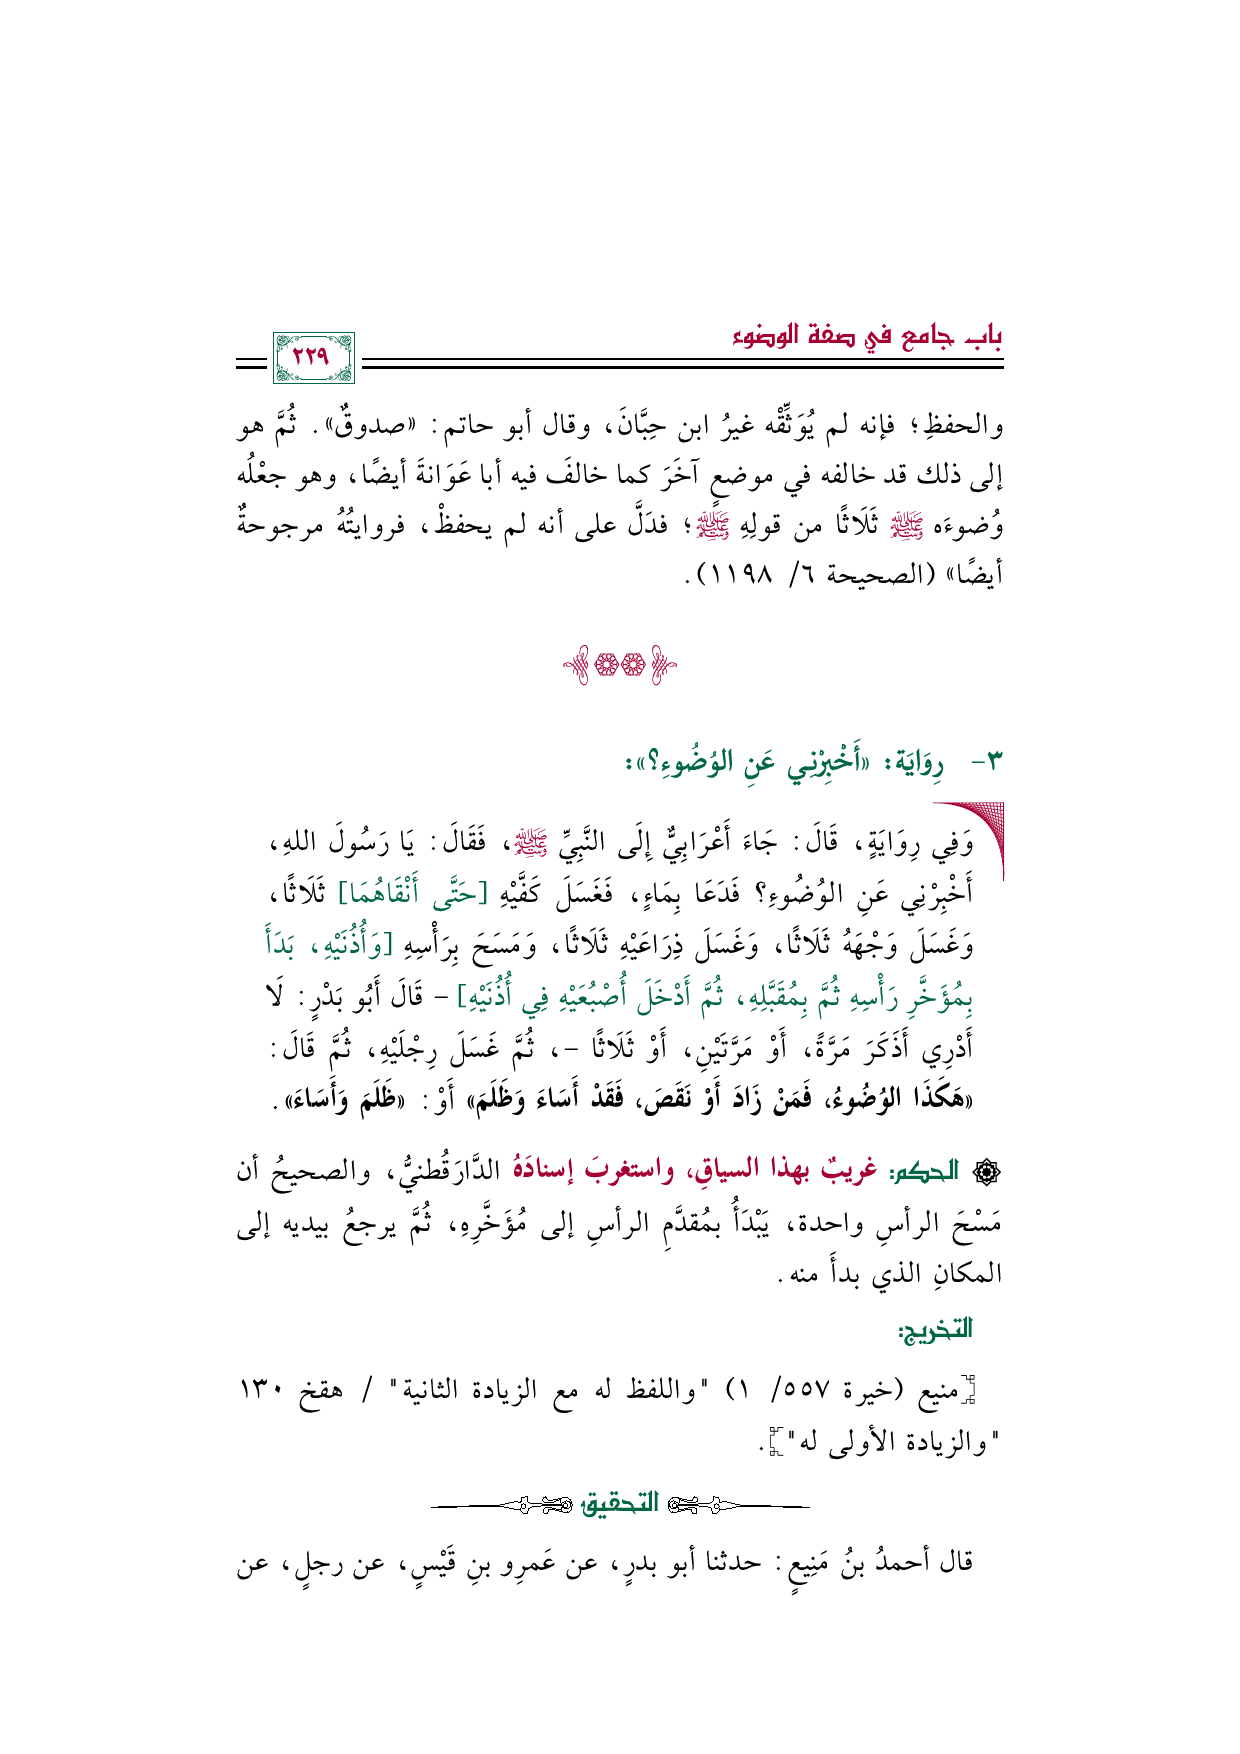 باب جامع في صفة الوضوء
٢٢٩
والحفظِ؛ فإنه لم يُوَثِّقْه غيرُ ابن حِبَّانَ، وقال أبو حاتم: «صدوقٌ». ثُمَّ هو
إلى ذلك قد خالفه في موضعٍ آخَرَ كما خالفَ فيه أبا عَوَانةَ أيضًا، وهو جعْلُه
وُضوءَه ﷺ ثَلَاثًا من قولِهِ ﷺ؛ فدَلَّ على أنه لم يحفظْ، فروايتُهُ مرجوحةٌ
أيضًا» (الصحيحة ٦/ ١١٩٨).
٣- رِوَايَة: «أَخْبِرْنِي عَنِ الوُضُوءِ؟»:
وَفِي رِوَايَةٍ، قَالَ: جَاءَ أَعْرَابِيٌّ إِلَى النَّبِيِّ ﷺ، فَقَالَ: يَا رَسُولَ اللهِ،
أَخْبِرْنِي عَنِ الوُضُوءِ؟ فَدَعَا بِمَاءٍ، فَغَسَلَ كَفَّيْهِ [حَتَّى أَنْقَاهُمَا] ثَلَاثًا،
وَغَسَلَ وَجْهَهُ ثَلَاثًا، وَغَسَلَ ذِرَاعَيْهِ ثَلَاثًا، وَمَسَحَ بِرَأْسِهِ [وَأُذُنَيْهِ، بَدَأَ
بِمُؤَخَّرِ رَأْسِهِ ثُمَّ بِمُقَبَّلِهِ، ثُمَّ أَدْخَلَ أُصْبُعَيْهِ فِي أُذُنَيْهِ] - قَالَ أَبُو بَدْرٍ: لَا
أَدْرِي أَذَكَرَ مَرَّةً، أَوْ مَرَّتَيْنِ، أَوْ ثَلَاثًا -، ثُمَّ غَسَلَ رِجْلَيْهِ، ثُمَّ قَالَ:
«هَكَذَا الوُضُوءُ، فَمَنْ زَادَ أَوْ نَقَصَ، فَقَدْ أَسَاءَ وَظَلَمَ» أَوْ: «ظَلَمَ وَأَسَاءَ».
الحكم: غريبٌ بهذا السياقِ، واستغربَ إسنادَهُ الدَّارَقُطنيُّ، والصحيحُ أن
مَسْحَ الرأسِ واحدة، يَبْدَأُ بمُقدَّمِ الرأسِ إلى مُؤَخَّرِهِ، ثُمَّ يرجعُ بيديه إلى
المكانِ الذي بدأَ منه.
التخريج:
[منيع (خيرة ٥٥٧/ ١) "واللفظ له مع الزيادة الثانية" / هقخ ١٣٠
"والزيادة الأولى له"].
التحقيق
قال أحمدُ بنُ مَنِيعٍ: حدثنا أبو بدرٍ، عن عَمرِو بنِ قَيْسٍ، عن رجلٍ، عن